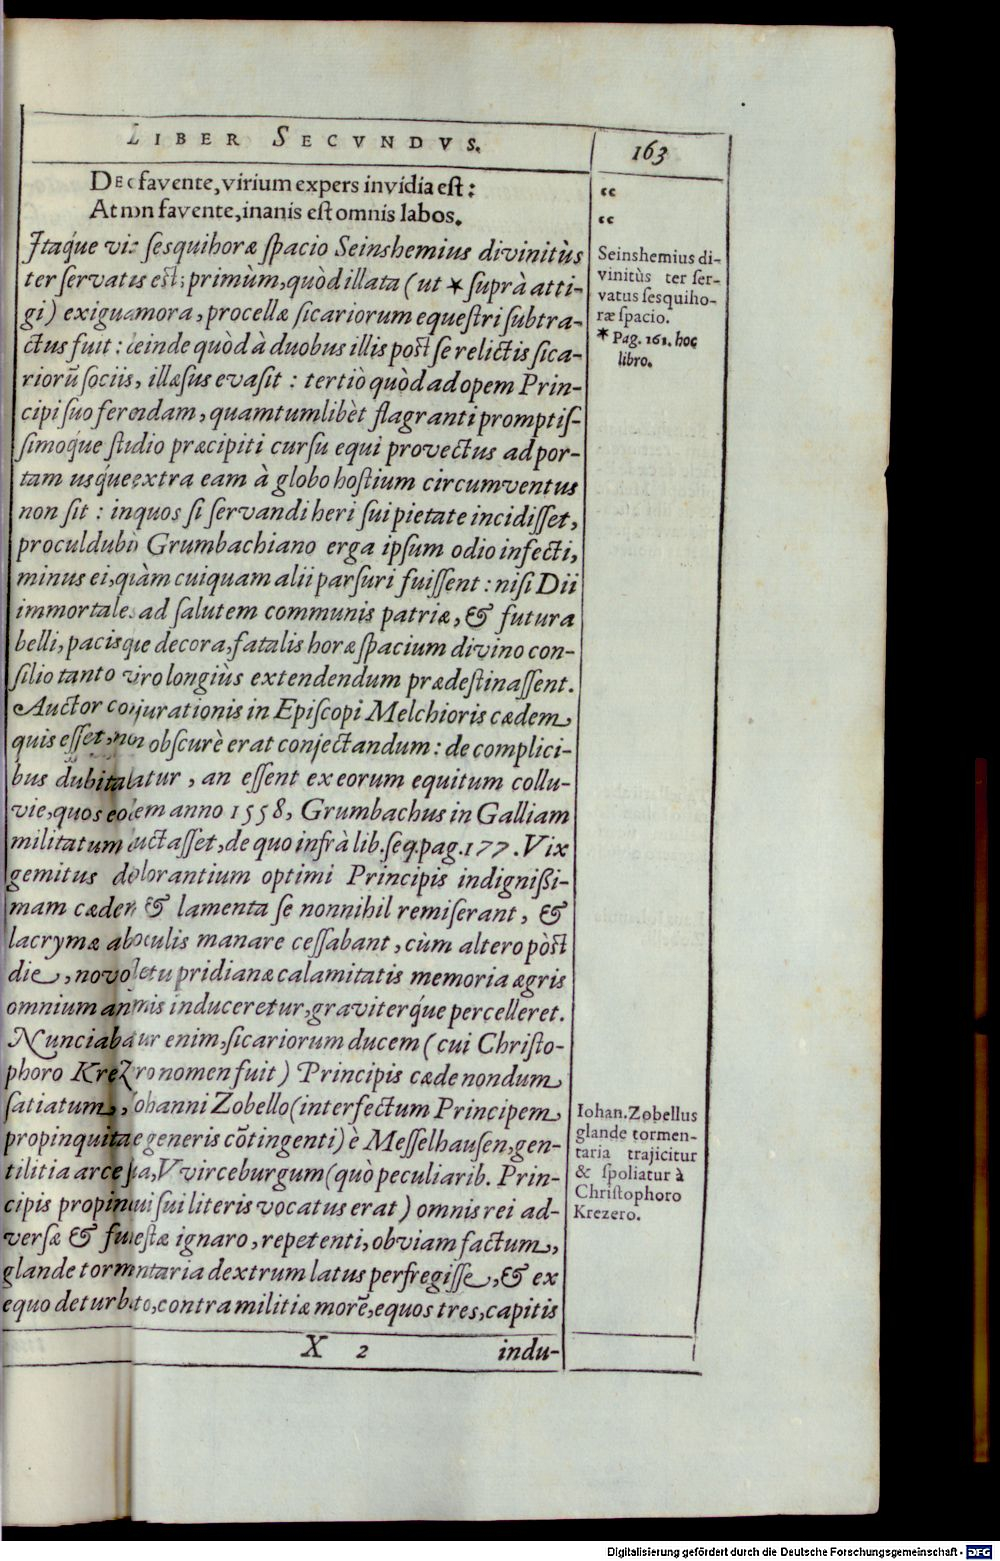 LIBER SECVNDVS.
163
Deo favente, virium expers invidia est:
At non favente, inanis est omnis labos.
“
“
Itaq́ue vix sesquihoræ spacio Seinshemius divinitùs
ter servatus est; primùm, quòd illata (ut * suprà atti-
gi) exigua mora, procellæ sicariorum equestri subtra-
ctus fuit: deinde quòd à duobus illis post se relictis sica-
riorũ sociis, illæsus evasit: tertiò quòd ad opem Prin-
cipi suo ferendam, quamtumlibèt flagranti promptis-
simoq́ue studio præcipiti cursu equi provectus ad por-
tam usq́ue, extra eam à globo hostium circumventus
non sit: in quos si servandi heri sui pietate incidisset,
procul dubio Grumbachiano erga ipsum odio infecti,
minus ei, quàm cuiquam alii parsuri fuissent: nisi Dii
immortales ad salutem communis patriæ, & futura
belli, pacisque decora, fatalis horæ spacium divino con-
silio tanto viro longiùs extendendum prædestinassent.
Auctor conjurationis in Episcopi Melchioris cædem
quis esset, non obscurè erat conjectandum: de complici-
bus dubitabatur, an essent ex eorum equitum collu-
vie, quos eodem anno 1558, Grumbachus in Galliam
militatum ductasset, de quo infrà lib. seq. pag. 177. Vix
gemitus dolorantium optimi Principis indignißi-
mam cædem & lamenta se nonnihil remiserant, &
lacrymæ ab oculis manare cessabant, cùm altero pòst
die, novo letu pridianæ calamitatis memoria ægris
omnium animis induceretur, graviterq́ue percelleret.
Nunciabatur enim, sicariorum ducem (cui Christo-
phoro Krezero nomen fuit) Principis cæde nondum
satiatum, Iohanni Zobello (interfectum Principem
propinquitate generis cõtingenti) è Messelhausen, gen-
tilitia arce sua, VVirceburgum (quò peculiarib. Prin-
cipis propinqui sui literis vocatus erat) omnis rei ad-
versæ & funestæ ignaro, repetenti, obviam factum,
glande tormentaria dextrum latus perfregisse, & ex
equo deturbato, contra militiæ morẽ, equos tres, capitis
X 2
indu-
Seinshemius di-
vinitùs ter ser-
vatus sesquiho-
ræ spacio.
* Pag. 161. hoc
libro.
Iohan. Zobellus
glande tormen-
taria trajicitur
& spoliatur à
Christophoro
Krezero.
Digitalisierung gefördert durch die Deutsche Forschungsgemeinschaft - DFG